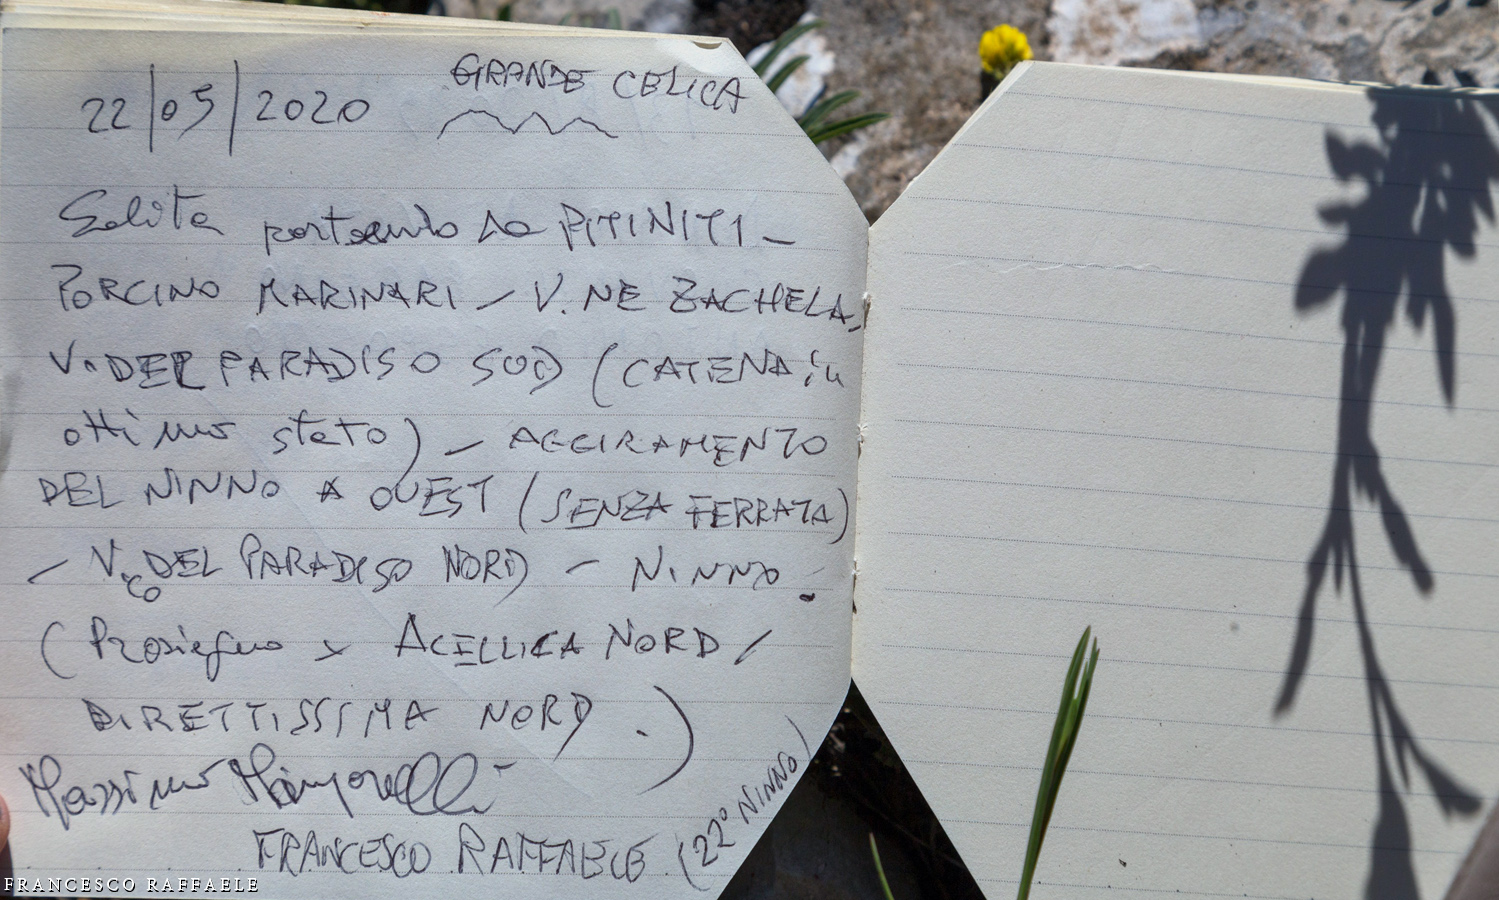 22|05|2020
GRANDE CELICA
Salita partendo da PITINITI –
PORCINO MARINARI – V. NE ZACHELA,
V. DEL PARADISO SUD (CATENA in
ottimo stato) – AGGIRAMENTO
DEL NINNO A OUEST (SENZA FERRATA)
– V.co DEL PARADISO NORD – NINNO.
(Prosieguo x ACELLICA NORD /
DIRETTISSIMA NORD .)
Massimo
FRANCESCO RAFFAELE (22° NINNO)
FRANCESCO RAFFAELE